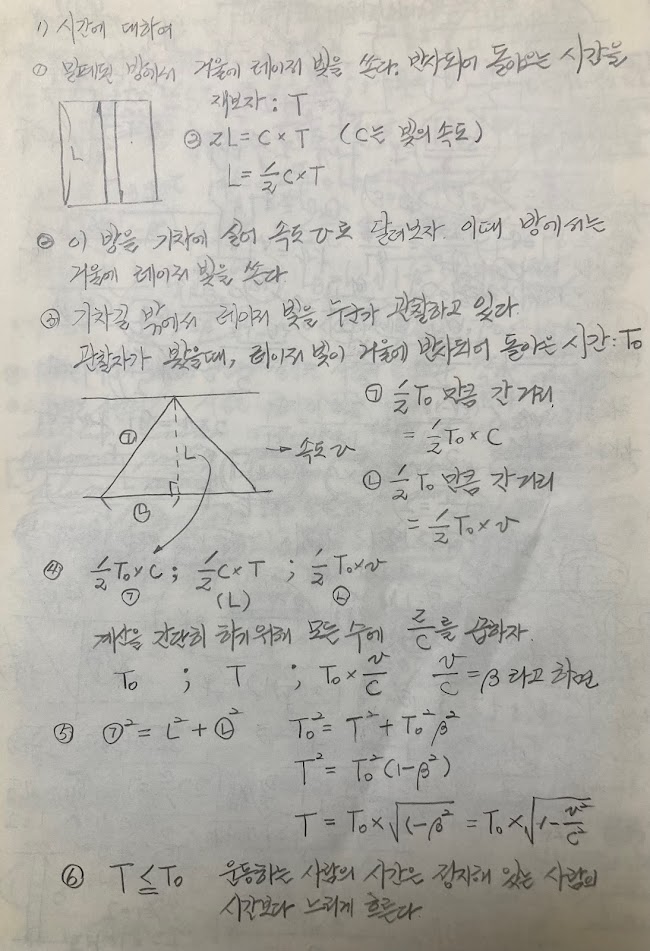 1) 시간에 대하여
① 밀폐된 방에서 거울에 레이저 빛을 쏜다. 반사되어 돌아오는 시간을
재보자 : T
L
② 2L = C × T (C는 빛의 속도)
L = 1/2 C × T
② 이 방을 기차에 실어 속도 v로 달려보자. 이때 방에서는
거울에 레이저 빛을 쏜다
③ 기차길 밖에서 레이저 빛을 누군가 관찰하고 있다.
관찰자가 봤을때, 레이저 빛이 거울에 반사되어 돌아오는 시간 : T₀
㉠ L → 속도 v
㉡
㉠ 1/2 T₀ 만큼 간 거리
= 1/2 T₀ × C
㉡ 1/2 T₀ 만큼 간 거리
= 1/2 T₀ × v
④ 1/2 T₀ × C ; 1/2 C × T ; 1/2 T₀ × v
㉠ (L) ㉡
계산을 간단히 하기 위해 모든 수에 2/C를 곱하자.
T₀ ; T ; T₀ × v/C v/C = β 라고 하면
⑤ ㉠² = L² + ㉡² T₀² = T² + T₀²β²
T² = T₀²(1-β²)
T = T₀ × √(1-β²) = T₀ × √(1-v²/C²)
⑥ T ≤ T₀ 운동하는 사람의 시간은 정지해 있는 사람의
시간보다 느리게 흐른다.